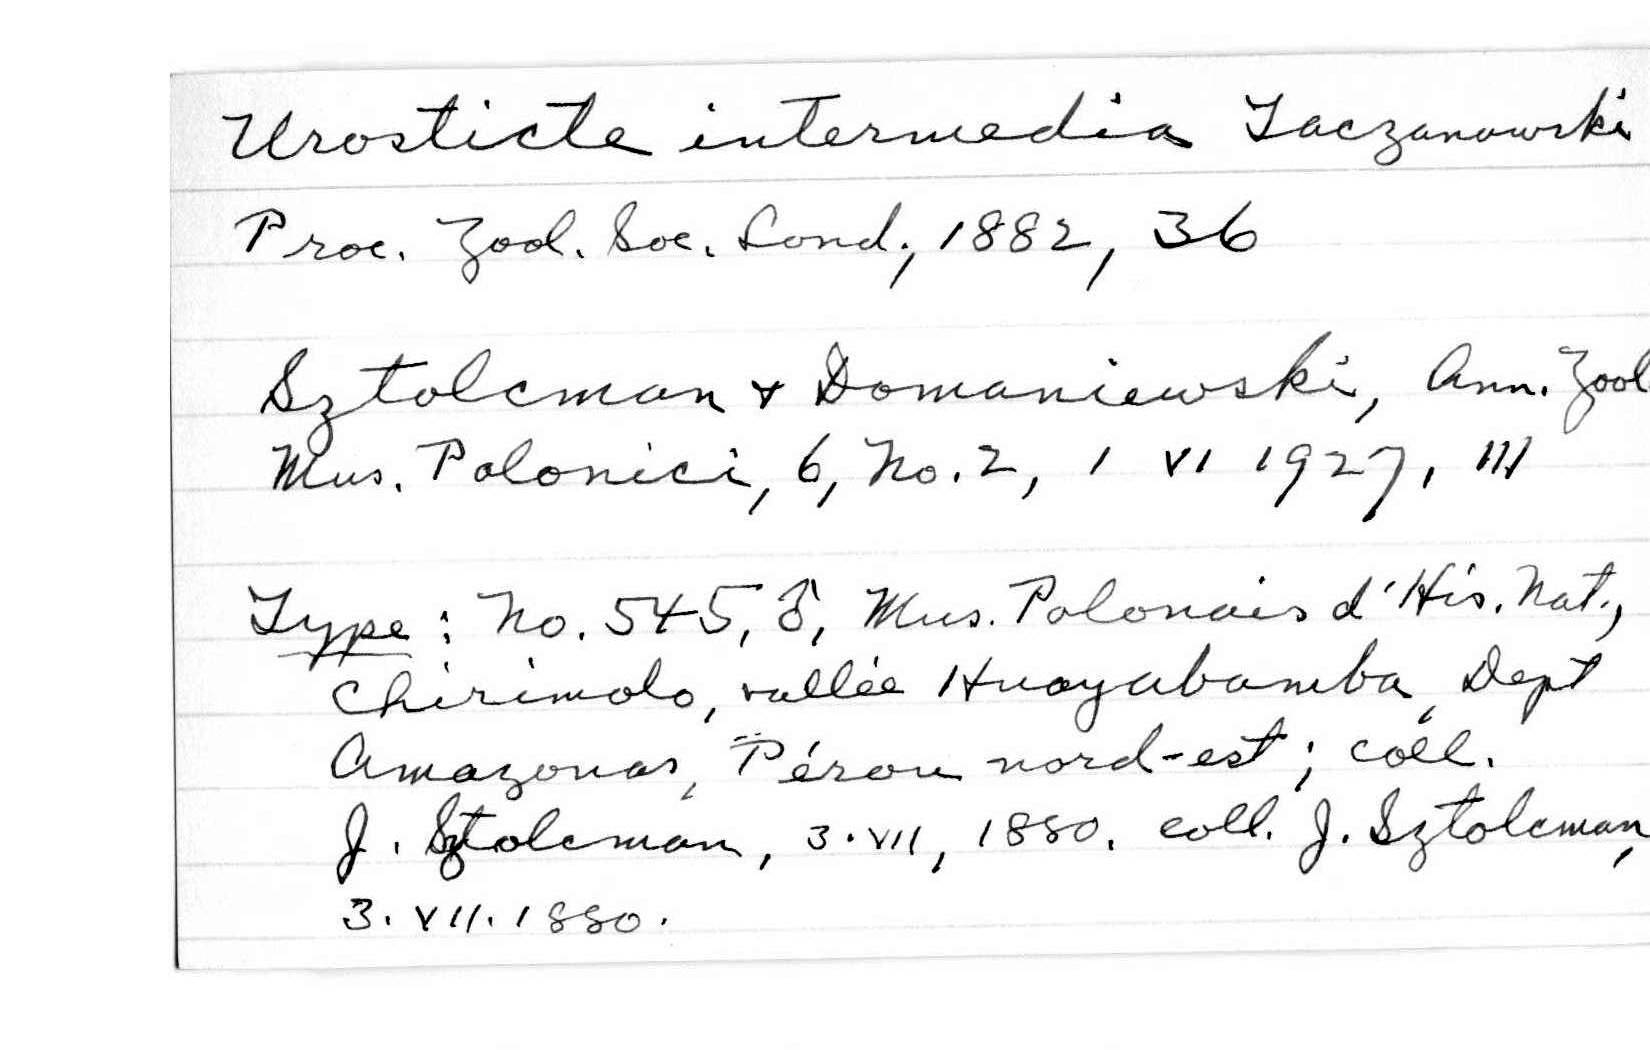 Urosticte intermedia Taczanowski
Proc. Zool. Soc. Lond., 1882, 36
Sztolcman & Domaniewski, Ann. Zool
Mus. Polonici, 6, No. 2, 1 VI 1927, 111
Type: No. 545, ♂, Mus. Polonais d'His. Nat.,
Chirimolo, vallée Huayabamba, Dept
Amazonas, Pérou nord-est; coll.
J. Sztolcman, 3.VII, 1880. coll. J. Sztolcman,
3.VII.1880.